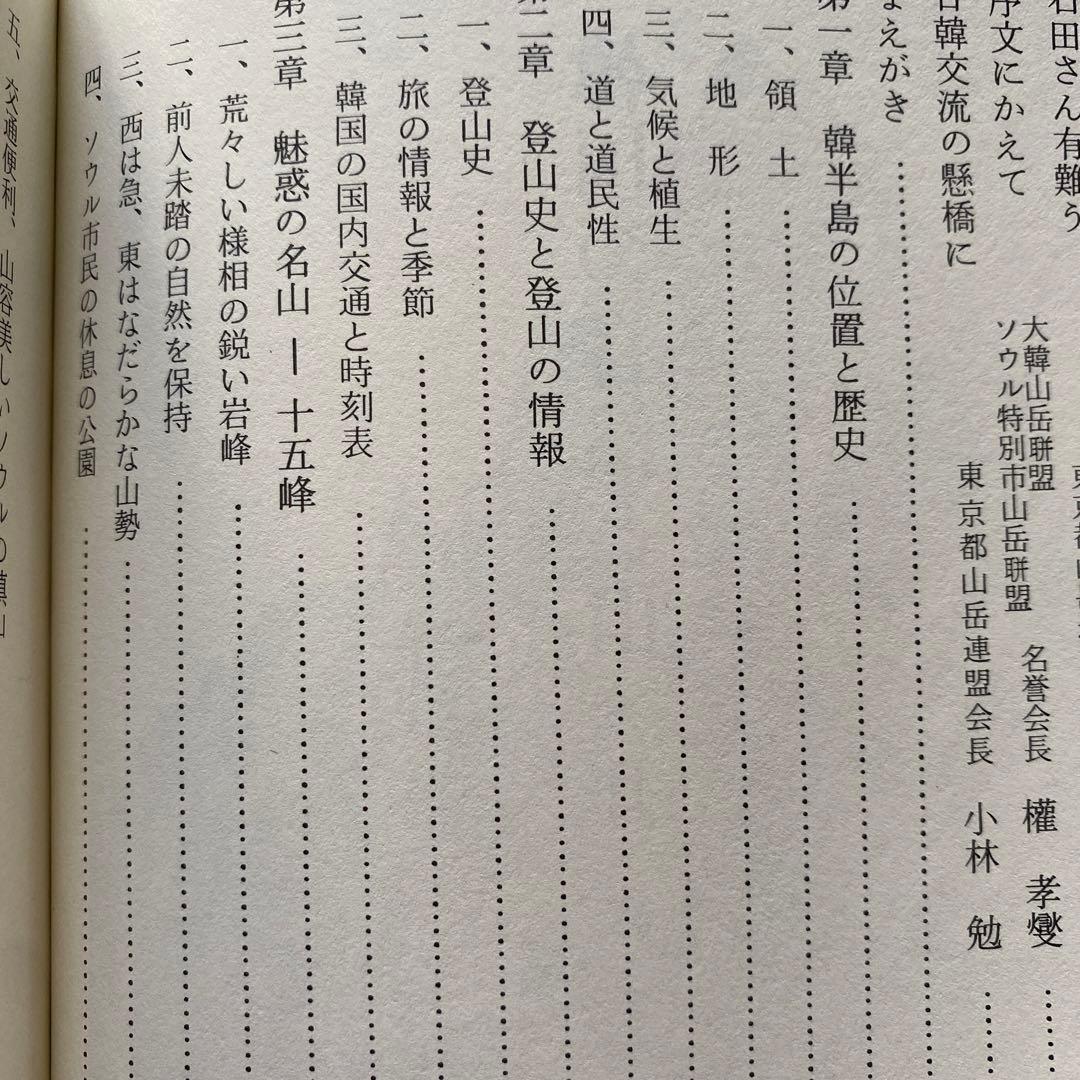 石田さん有難う
序文にかえて
大韓山岳聯盟
ソウル特別市山岳聯盟 名誉会長 權 孝燮
日韓交流の懸橋に
東京都山岳連盟会長 小林 勉
まえがき
第一章 韓半島の位置と歴史
一、領土
二、地形
三、気候と植生
四、道と道民性
第二章 登山史と登山の情報
一、登山史
二、旅の情報と季節
三、韓国の国内交通と時刻表
第三章 魅惑の名山 ー 十五峰
一、荒々しい様相の鋭い岩峰
二、前人未踏の自然を保持
三、西は急、東はなだらかな山勢
四、ソウル市民の休息の公園
五、交通便利、山容美しいソウルの鎮山